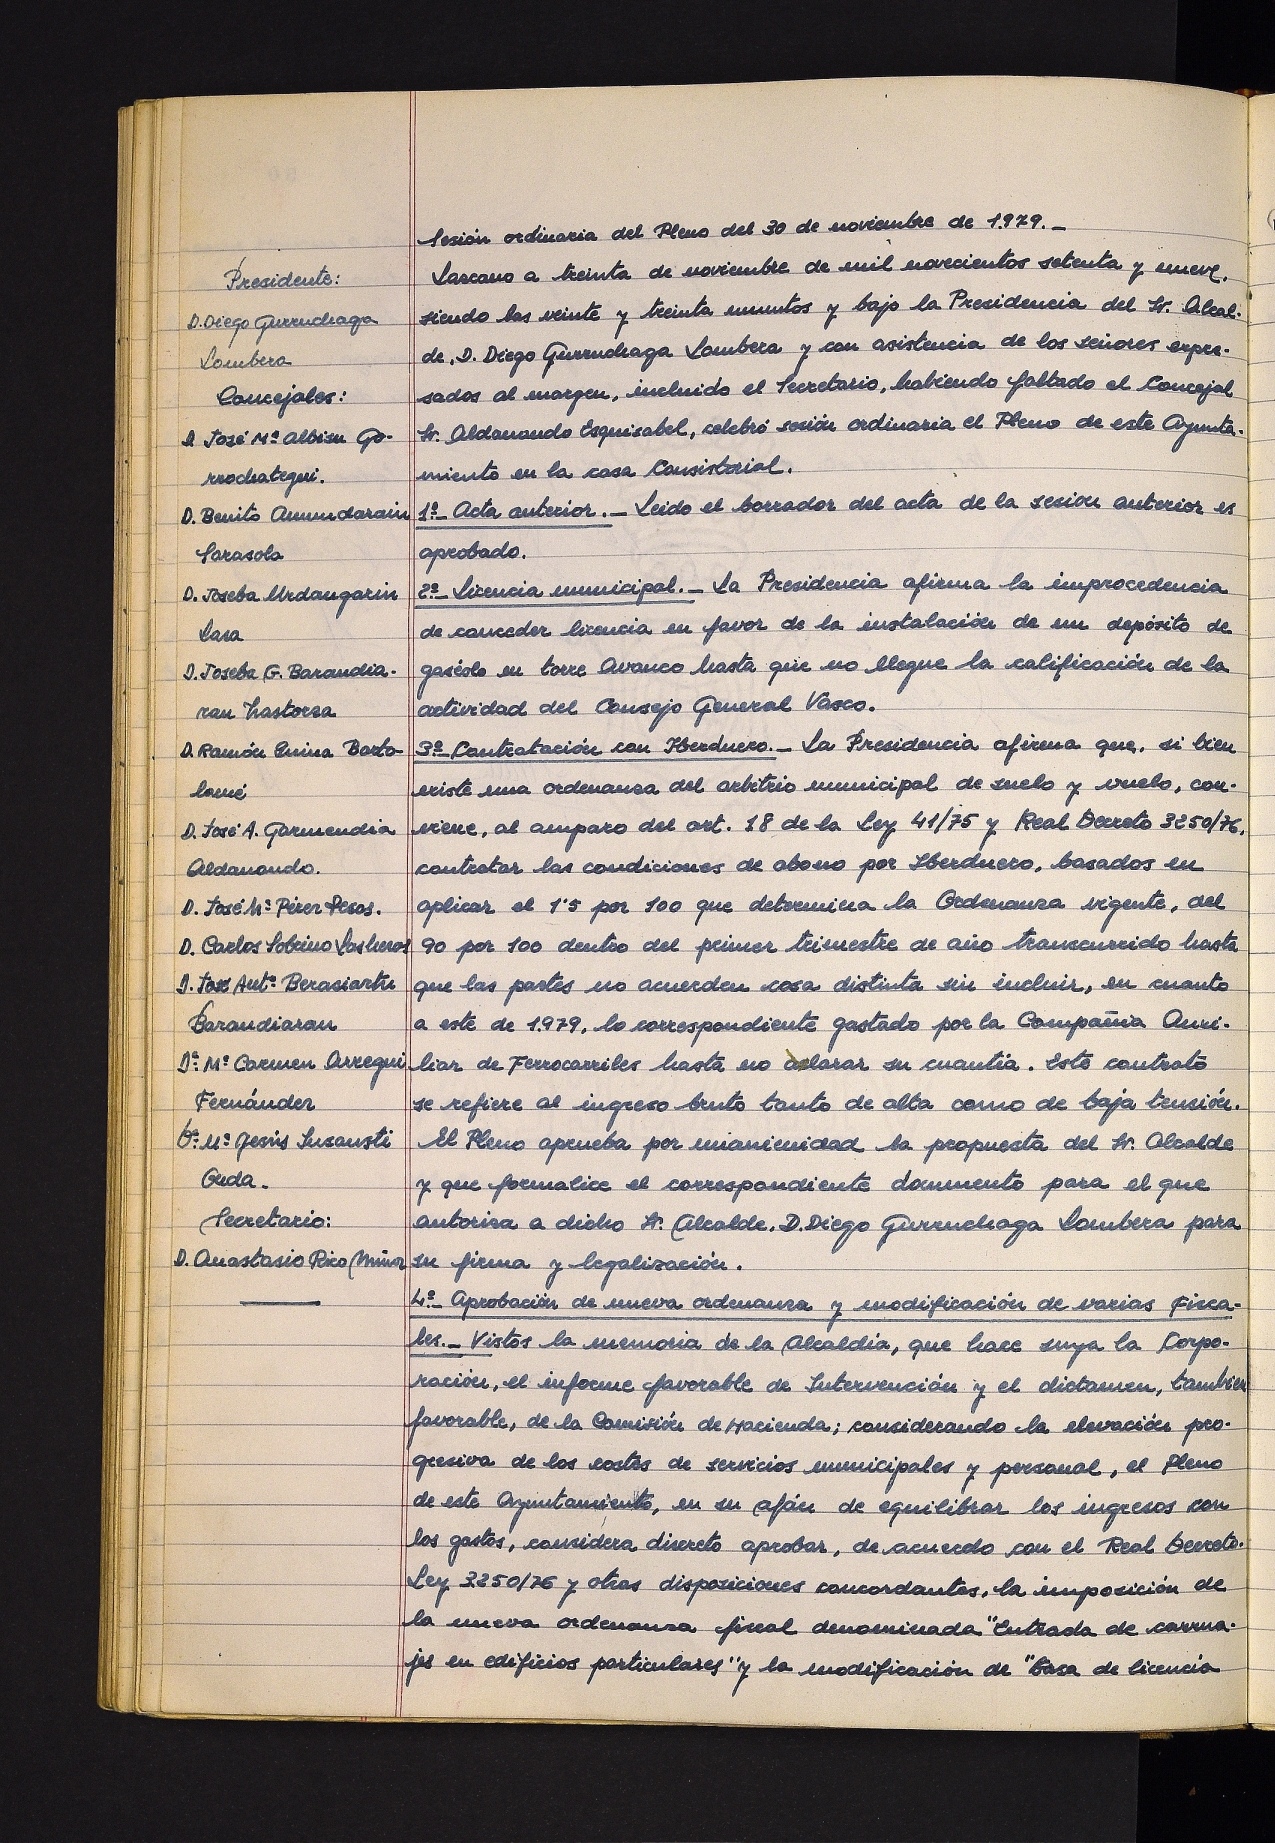 Sesión ordinaria del Pleno del 30 de noviembre de 1.979.-
Lazcano a treinta de noviembre de mil novecientos setenta y nueve,
siendo las veinte y treinta minutos y bajo la Presidencia del Sr. Alcal-
de, D. Diego Gurruchaga Lombera y con asistencia de los señores expre-
sados al margen, incluido el Secretario, habiendo faltado el Concejal
Sr. Aldanondo Esquisabel, celebró sesión ordinaria el Pleno de este Ayunta-
miento en la casa Consistorial.
1º- Acta anterior.- Leido el borrador del acta de la sesión anterior es
aprobado.
2º- Licencia municipal.- La Presidencia afirma la improcedencia
de conceder licencia en favor de la instalación de un depósito de
gasóleo en torre Avanco hasta que no llegue la calificación de la
actividad del Consejo General Vasco.
3º- Contratación con Iberduero.- La Presidencia afirma que, si bien
existe una ordenanza del arbitrio municipal de suelo y vuelo, con-
viene, al amparo del art. 18 de la Ley 41/75 y Real Decreto 3250/76,
contratar las condiciones de abono por Iberduero, basados en
aplicar el 1'5 por 100 que determina la Ordenanza vigente, del
90 por 100 dentro del primer trimestre de año transcurrido hasta
que las partes no acuerden cosa distinta sin incluir, en cuanto
a este de 1.979, lo correspondiente gastado por la Compañia Auxi-
liar de Ferrocarriles hasta no aclarar su cuantía. Este contrato
se refiere al ingreso bruto tanto de alta como de baja tensión.
El Pleno aprueba por unanimidad la propuesta del Sr. Alcalde
y que formalice el correspondiente documento para el que
autoriza a dicho Sr. Alcalde, D. Diego Gurruchaga Lombera para
su firma y legalización.
4º- Aprobación de nueva ordenanza y modificación de varias Fisca-
les.- Vistos la memoria de la Alcaldía, que hace suya la Corpo-
ración, el informe favorable de Intervención y el dictamen, también
favorable, de la Comisión de Hacienda; considerando la elevación pro-
gresiva de los costes de servicios municipales y personal, el Pleno
de este Ayuntamiento, en su afán de equilibrar los ingresos con
los gastos, considera discreto aprobar, de acuerdo con el Real Decreto-
Ley 3250/76 y otras disposiciones concordantes, la imposición de
la nueva ordenanza fiscal denominada "Entrada de carrua-
jes en edificios particulares" y la modificación de "Tasa de licencia
Presidente:
D. Diego Gurruchaga
Lombera
Concejales:
D. José Mª Albisu Go-
rrochategui.
D. Benito Amundarain
Sarasola
D. Joseba Urdangarin
Lasa
D. Joseba G. Barandia-
ran
D. Ramón Barto-
lomé
D. José A. Garmendia
Aldanondo.
D. José Mª Pérez Pesos.
D. Carlos Sobrino
D. José Antº Berasiartu
Barandiaran
Dª. Mª Carmen Arregui
Fernández
Dª. Mª Jesús Insausti
Oeda.
Secretario:
D. Anastasio Rico Muñoz